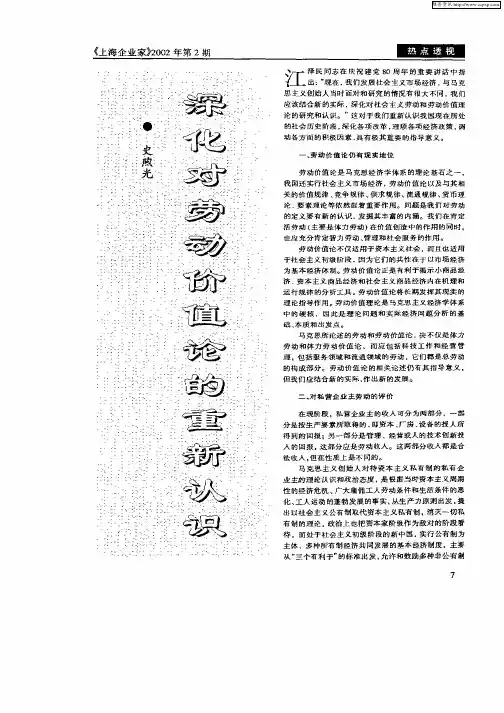 维普资讯 http://www.cqvip.com
《上海企业家》2002年第2期
热点透视
深化对劳动价值论的重新认识
●史煦光
江泽民同志在庆祝建党80周年的重要讲话中指
出:“现在,我们发展社会主义市场经济,与马克
思主义创始人当时面对和研究的情况有很大不同,我们
应该结合新的实际,深化对社会主义劳动和劳动价值理
论的研究和认识。”这对于我们重新认识我国现在所处
的社会历史阶段,深化各项改革,理顺各项经济政策,调
动各方面的积极因素,具有极其重要的指导意义。
一、劳动价值论仍有现实地位
劳动价值论是马克思经济学体系的理论基石之一,
我国还实行社会主义市场经济,劳动价值论以及与其相
关的价值规律、竞争规律、供求规律、流通规律、货币理
论、要素理论等依然起着重要作用。问题是我们对劳动
的定义要有新的认识,发掘其丰富的内涵。我们在肯定
活劳动(主要是体力劳动)在价值创造中的作用的同时,
也应充分肯定智力劳动、管理和社会服务的作用。
劳动价值论不仅适用于资本主义社会,而且也适用
于社会主义初级阶段,因为它们的共性在于以市场经济
为基本经济体制。劳动价值论正是有利于揭示小商品经
济、资本主义商品经济和社会主义商品经济内在机理和
运行规律的分析工具。劳动价值论将长期发挥其现实的
理论指导作用。劳动价值理论是马克思主义经济学体系
中的硬核,因此是理论问题和实际经济问题分析的基
础、本质和出发点。
马克思所论述的劳动和劳动价值论,决不仅是体力
劳动和体力劳动价值论,而应包括科技工作和经营管
理,包括服务领域和流通领域的劳动,它们都是总劳动
的构成部分。劳动价值论的相关论述仍有其指导意义,
但我们应结合新的实际,作出新的发展。
二、对私营企业主劳动的评价
在现阶段,私营企业主的收入可分为两部分,一部
分是按生产要素所取得的,即资本、厂房、设备的投入所
得到的回报;另一部分是管理、经营或人的技术创新投
入的回报,这部分应是劳动收入。这两部分收入都是合
法收入,但在性质上是不同的。
马克思主义创始人对待资本主义私有制的私有企
业主的理论认识和政治态度,是根据当时资本主义周期
性的经济危机、广大雇佣工人劳动条件和生活条件的恶
化、工人运动的蓬勃发展的事实,从生产力原则出发,提
出以社会主义公有制取代资本主义私有制,消灭一切私
有制的理论,政治上也把资本家阶级作为敌对的阶段看
待。而处于社会主义初级阶段的新中国,实行公有制为
主体、多种所有制经济共同发展的基本经济制度,主要
从“三个有利于”的标准出发,允许和鼓励多种非公有制
7